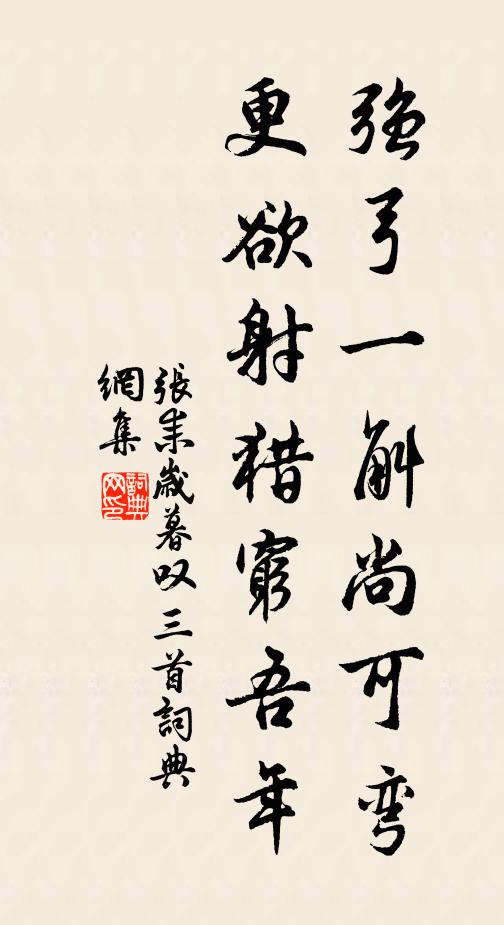 強弓一斛尚可弯
更欲射猎窮吾年
張耒歲暮叹三首詞典
網集
詞典
网印